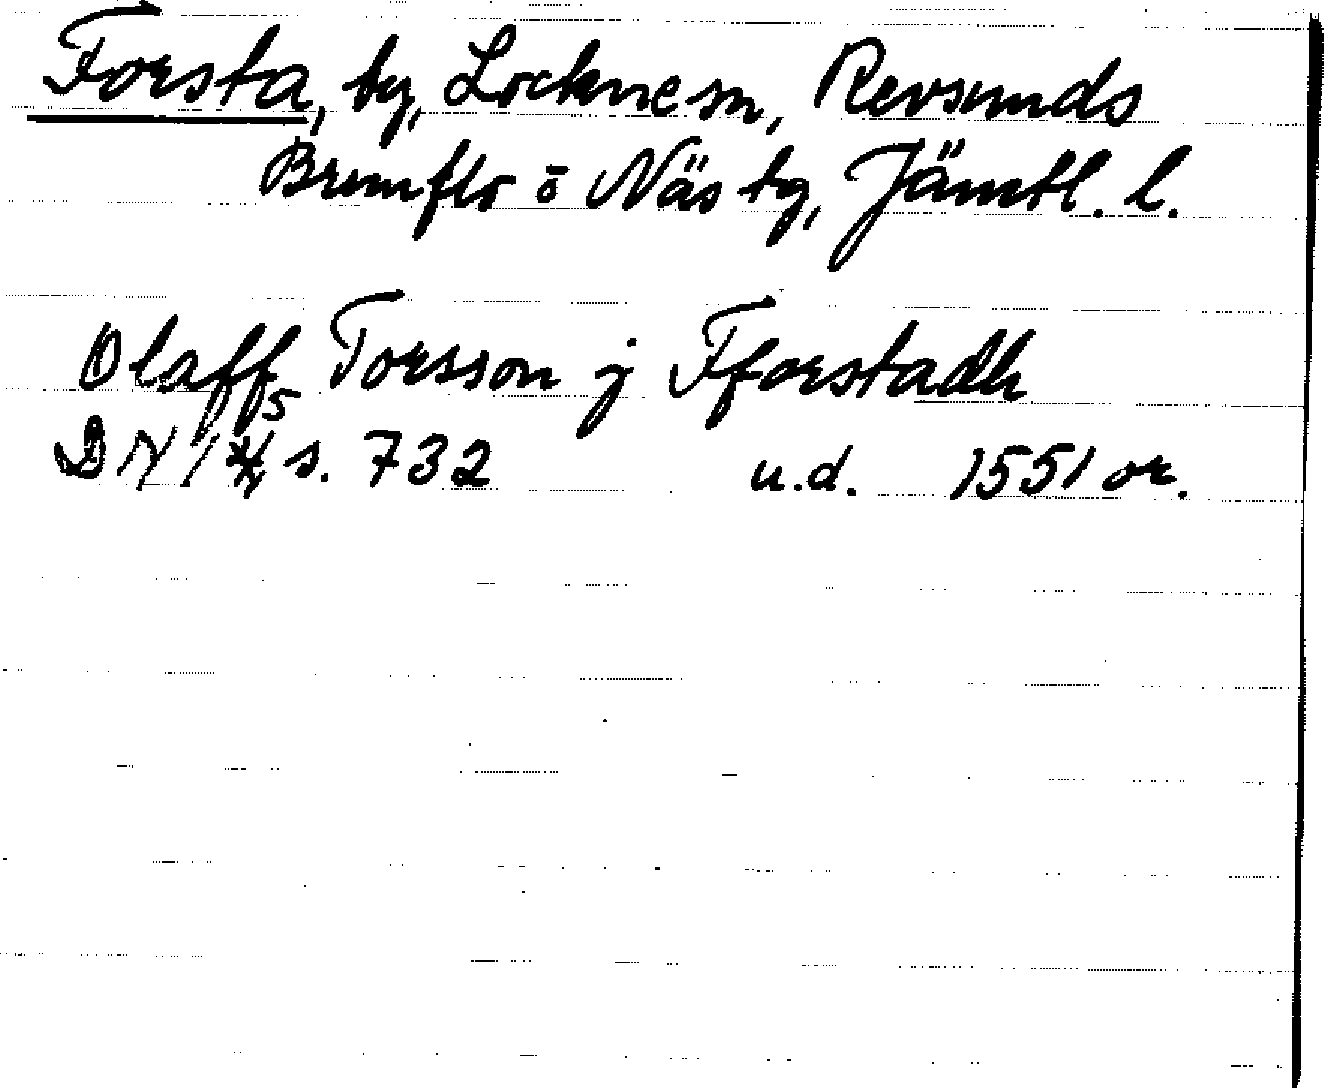 Forsta, by, Lockne sn, Revsunds
Brunflo o Näs tg, Jämtl. l.
Olaff Torsson j Fforstadh
DN 15 s. 732 u.d. 1551 or.